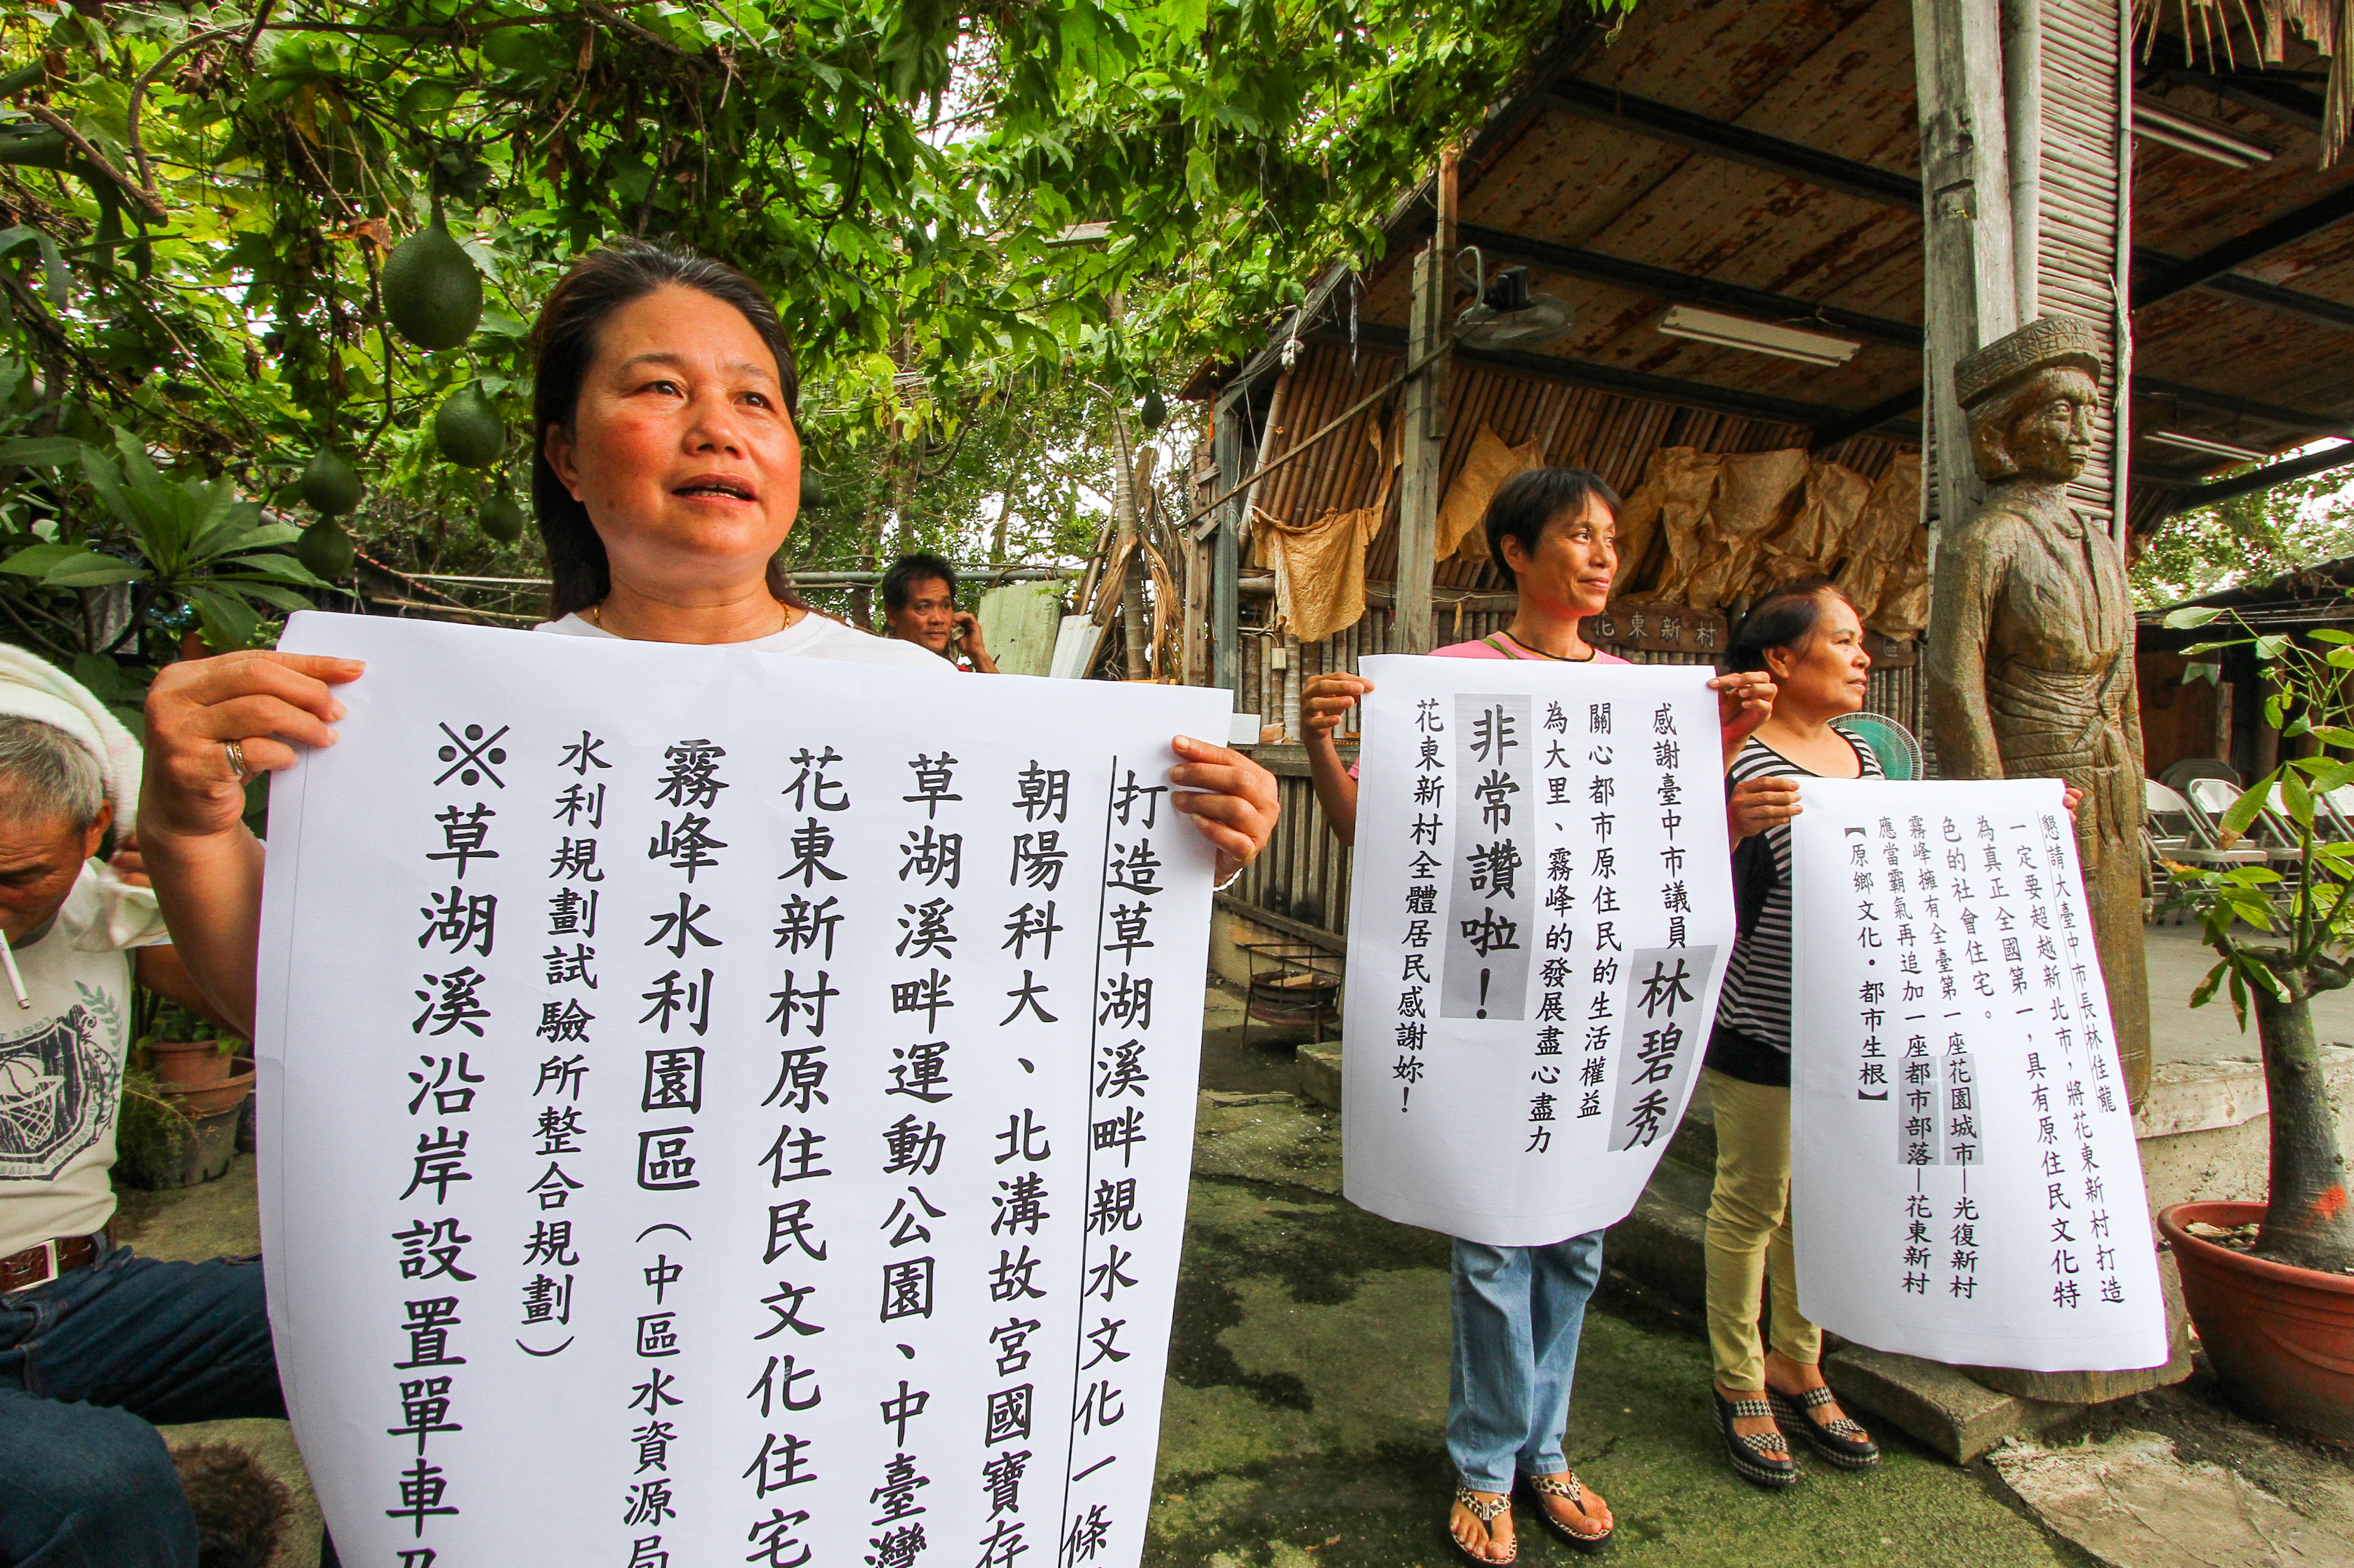 打造草湖溪畔親水文化一條
朝陽科大、北溝故宮國寶存
草湖溪畔運動公園、中臺灣
花東新村原住民文化住宅
霧峰水利園區(中區水資源局
水利規劃試驗所整合規劃)
※草湖溪沿岸設置單車
感謝臺中市議員林碧秀
關心都市原住民的生活權益
為大里、霧峰的發展盡心盡力
非常讚啦!
花東新村全體居民感謝妳!
懇請大臺中市長林佳龍
一定要超越新北市,將花東新村打造
為真正全國第一,具有原住民文化特
色的社會住宅。
霧峰擁有全臺第一座花園城市—光復新村
應當霸氣再追加一座都市部落—花東新村
【原鄉文化・都市生根】
花東新村